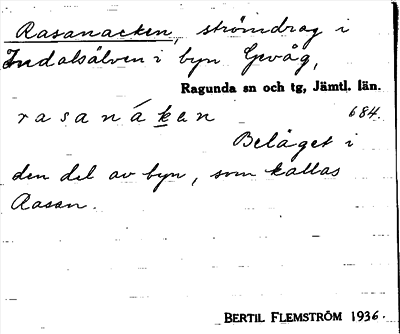 Rasanacken, strömdrag i
Indalsälven i byn Gevåg,
Ragunda sn och tg, Jämtl. län.
rasanákɛn 684.
Beläget i
den del av byn, som kallas
Rasan.
BERTIL FLEMSTRÖM 1936.